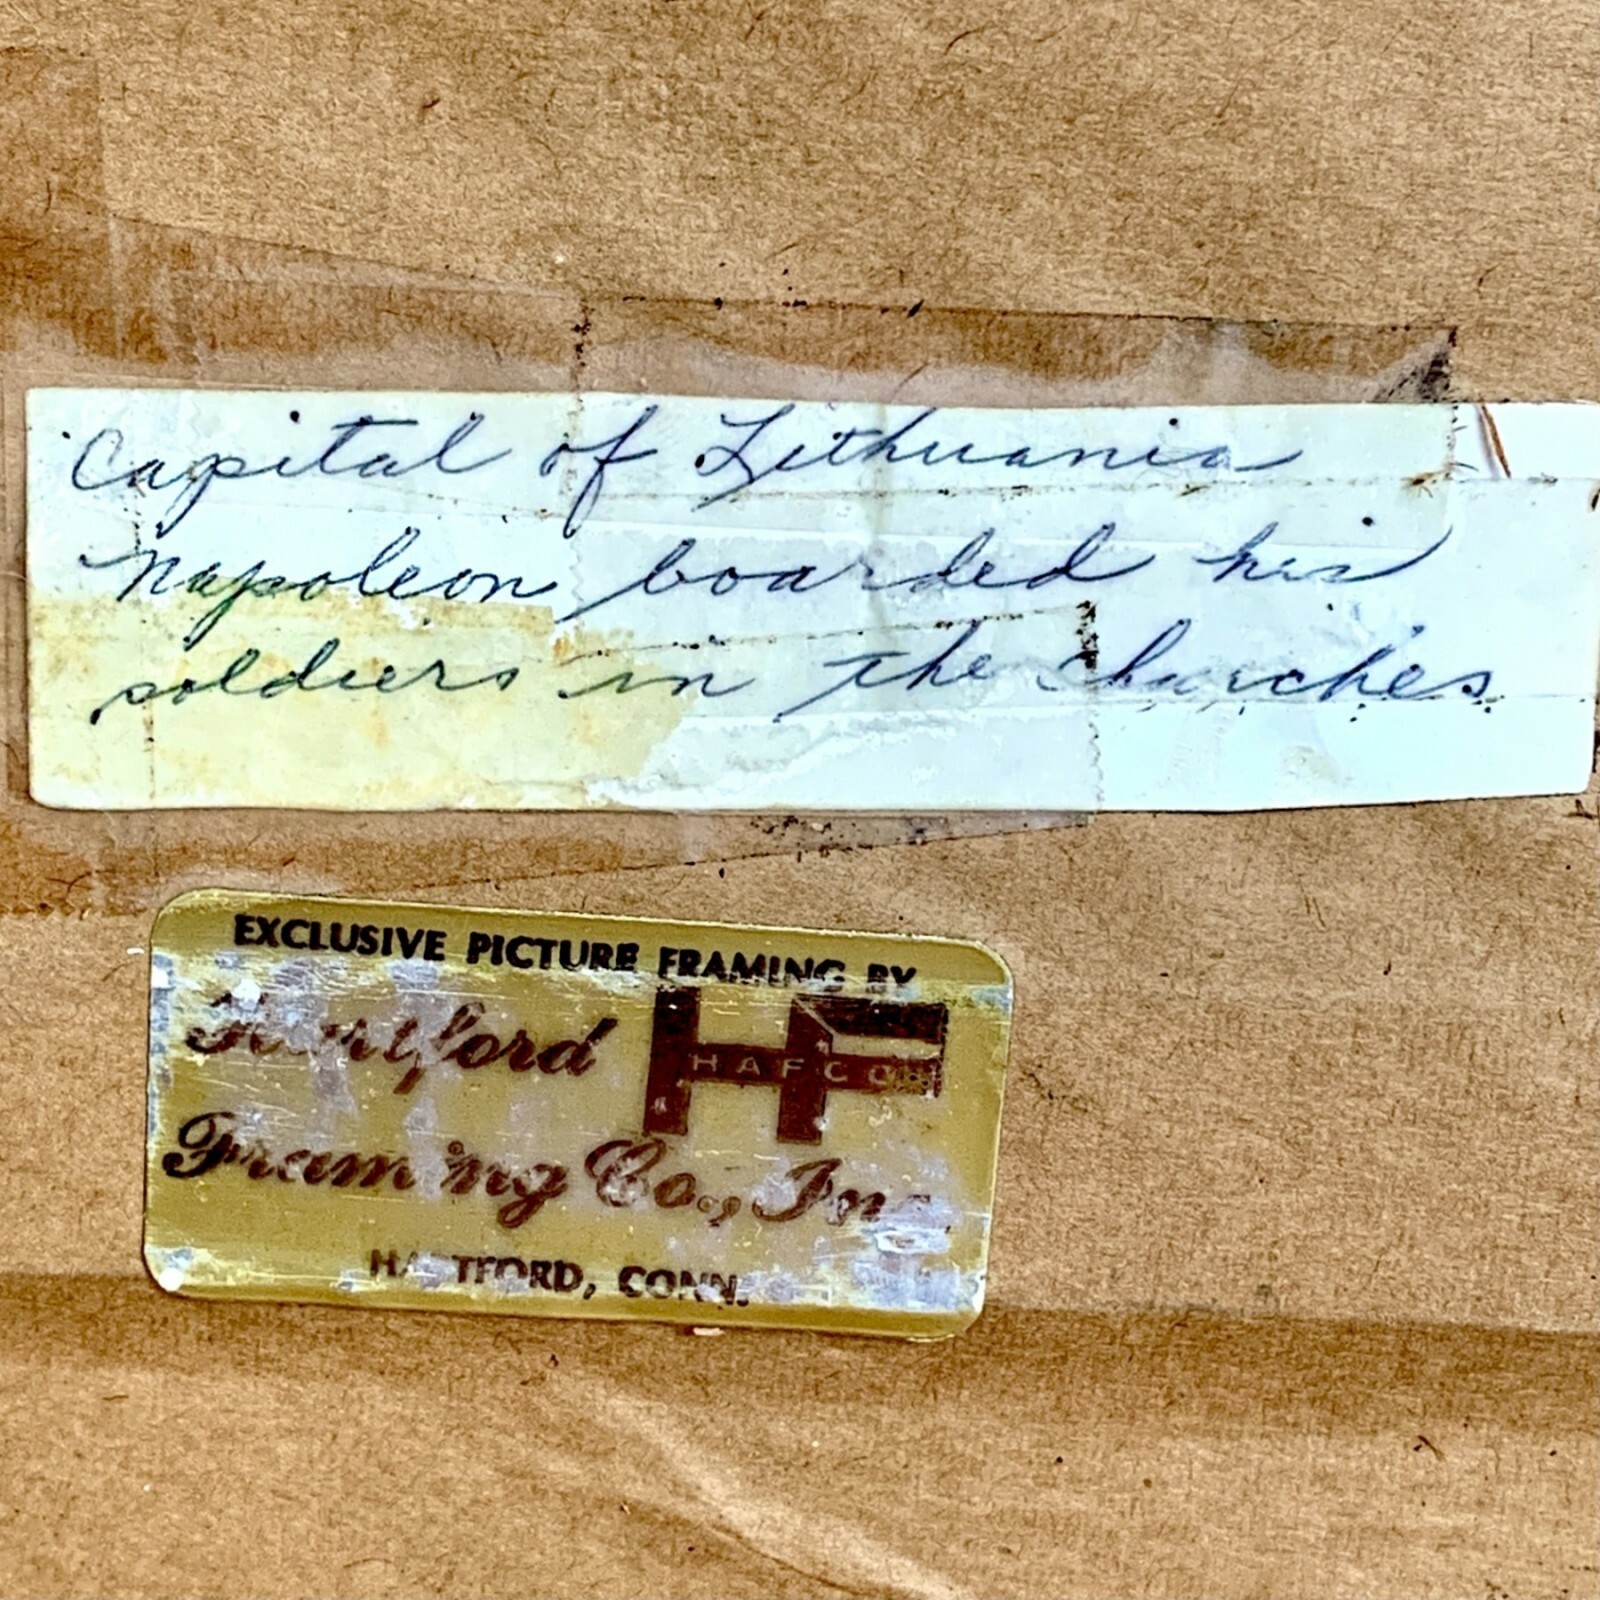 Capital of Lithuania
Napoleon boarded his
soldiers in the churches
EXCLUSIVE PICTURE FRAMING BY
Hartford
HF
HAFCO
Framing Co., Inc.
HARTFORD, CONN.